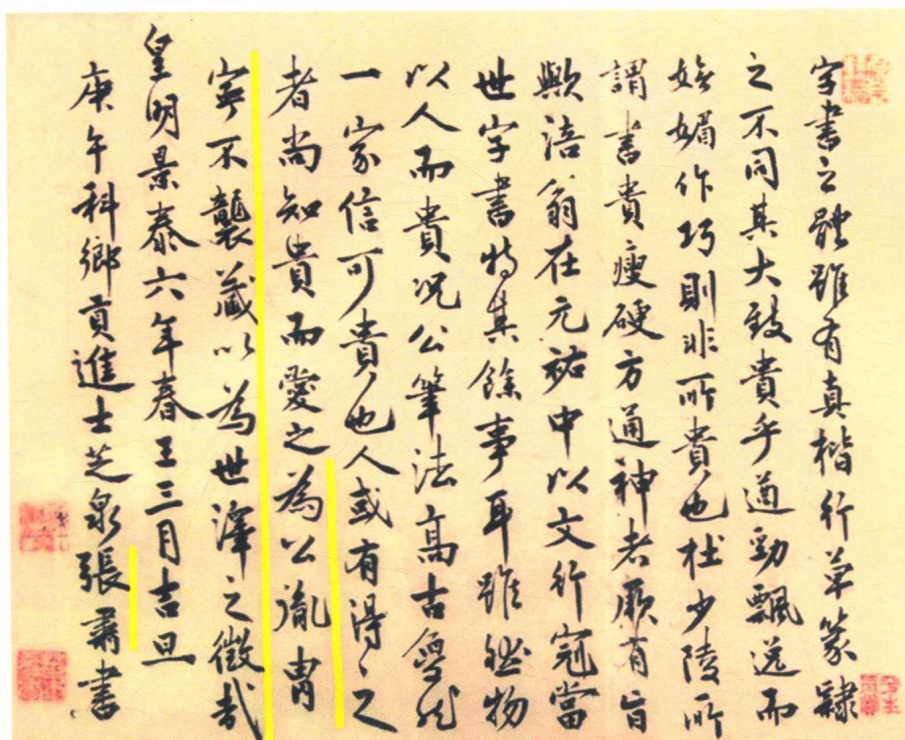 字書之體雖有真楷行草篆隸
之不同其大致貴乎遒勁飄逸而
嫵媚作巧則非所貴也杜少陵所
謂書貴瘦硬方通神者厥有旨
歟涪翁在元祐中以文行冠當
世字書特其餘事耳雖然物
以人而貴況公筆法高古夐然
一家信可貴也人或有得之
者尚知貴而愛之為公胤冑
寧不襲藏以為世澤之徵哉
皇明景泰六年春王三月吉旦
庚午科鄉貢進士芝泉張肅書